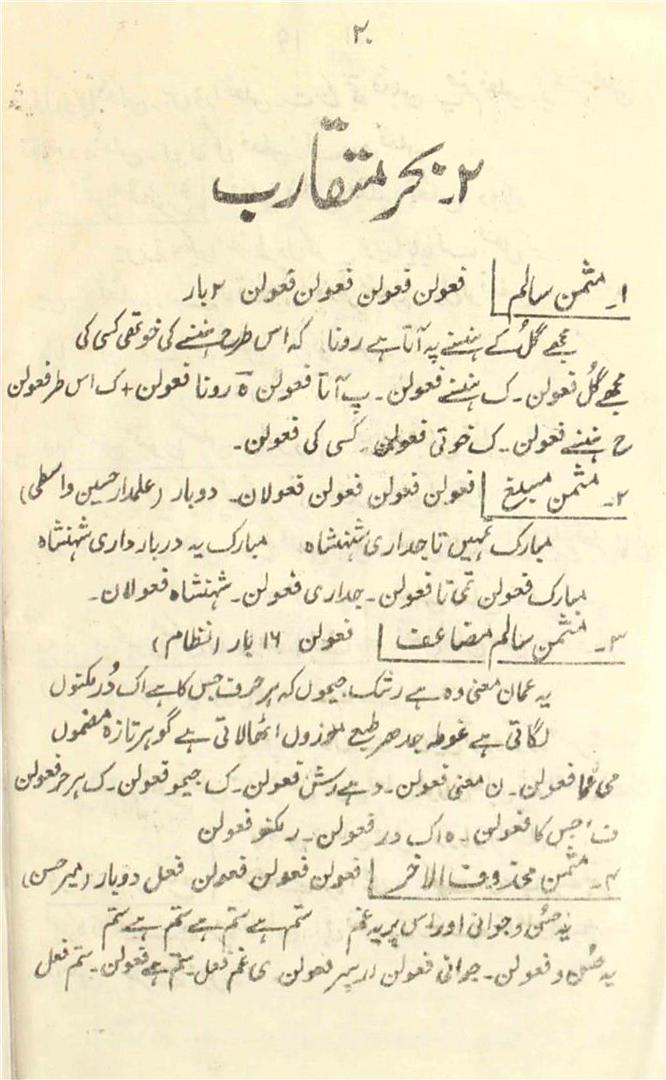 ۲۰
۲۔ بحر متقارب
۱۔ مثمن سالم | فعولن فعولن فعولن فعولن ۲ بار
مجھے گُل کے ہنسنے پہ آتا ہے رونا کہ اس طرح ہنسنے کی خو تھی کسی کی
مجھے گُل فعولن۔ ک ہنسنے فعولن۔ پ آتا فعولن ہ رونا فعولن + ک اس طر فعولن
ح ہنسنے فعولن۔ ک خو تی فعولن۔ کسی کی فعولن۔
۲۔ مثمن مسبغ | فعولن فعولن فعولن فعولان۔ دو بار (علمدار حسین واسطی)
مبارک تمہیں تاجداری شہنشاہ مبارک یہ دربار داری شہنشاہ
مبارک فعولن تمی تا فعولن۔ جداری فعولن۔ شہنشاہ فعولان۔
۳۔ مثمن سالم مضاعف | فعولن ۱۶ بار (نظام)
یہ عمان معنی وہ ہے رشک جیموں کہ ہر حرف جس کا ہے اک دُر مکنوں
لگاتی ہے غوطہ جدھر طبع موزوں اٹھا لاتی ہے گوہر تازہ مضموں
ی عما فعولن۔ ن معنی فعولن۔ د ہے رش فعولن۔ ک جیمو فعولن۔ ک ہر حر فعولن
ف جس کا فعولن۔ ہ اک در فعولن۔ ر مکنو فعولن
۴۔ مثمن محذوف الآخر | فعولن فعولن فعولن فعل دو بار (میر حسن)
یہ حُسن و جوانی اور اس پر یہ غم ستم ہے ستم ہے ستم ہے ستم
یہ حُسن و فعولن۔ جوانی فعولن ار سپر فعولن ی غم فعل۔ ستم ہے فعولن۔ ستم فعل